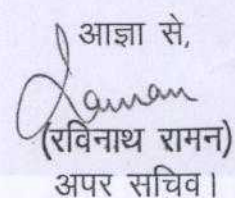 आज्ञा से,
Raman
(रविनाथ रामन)
अपर सचिव।